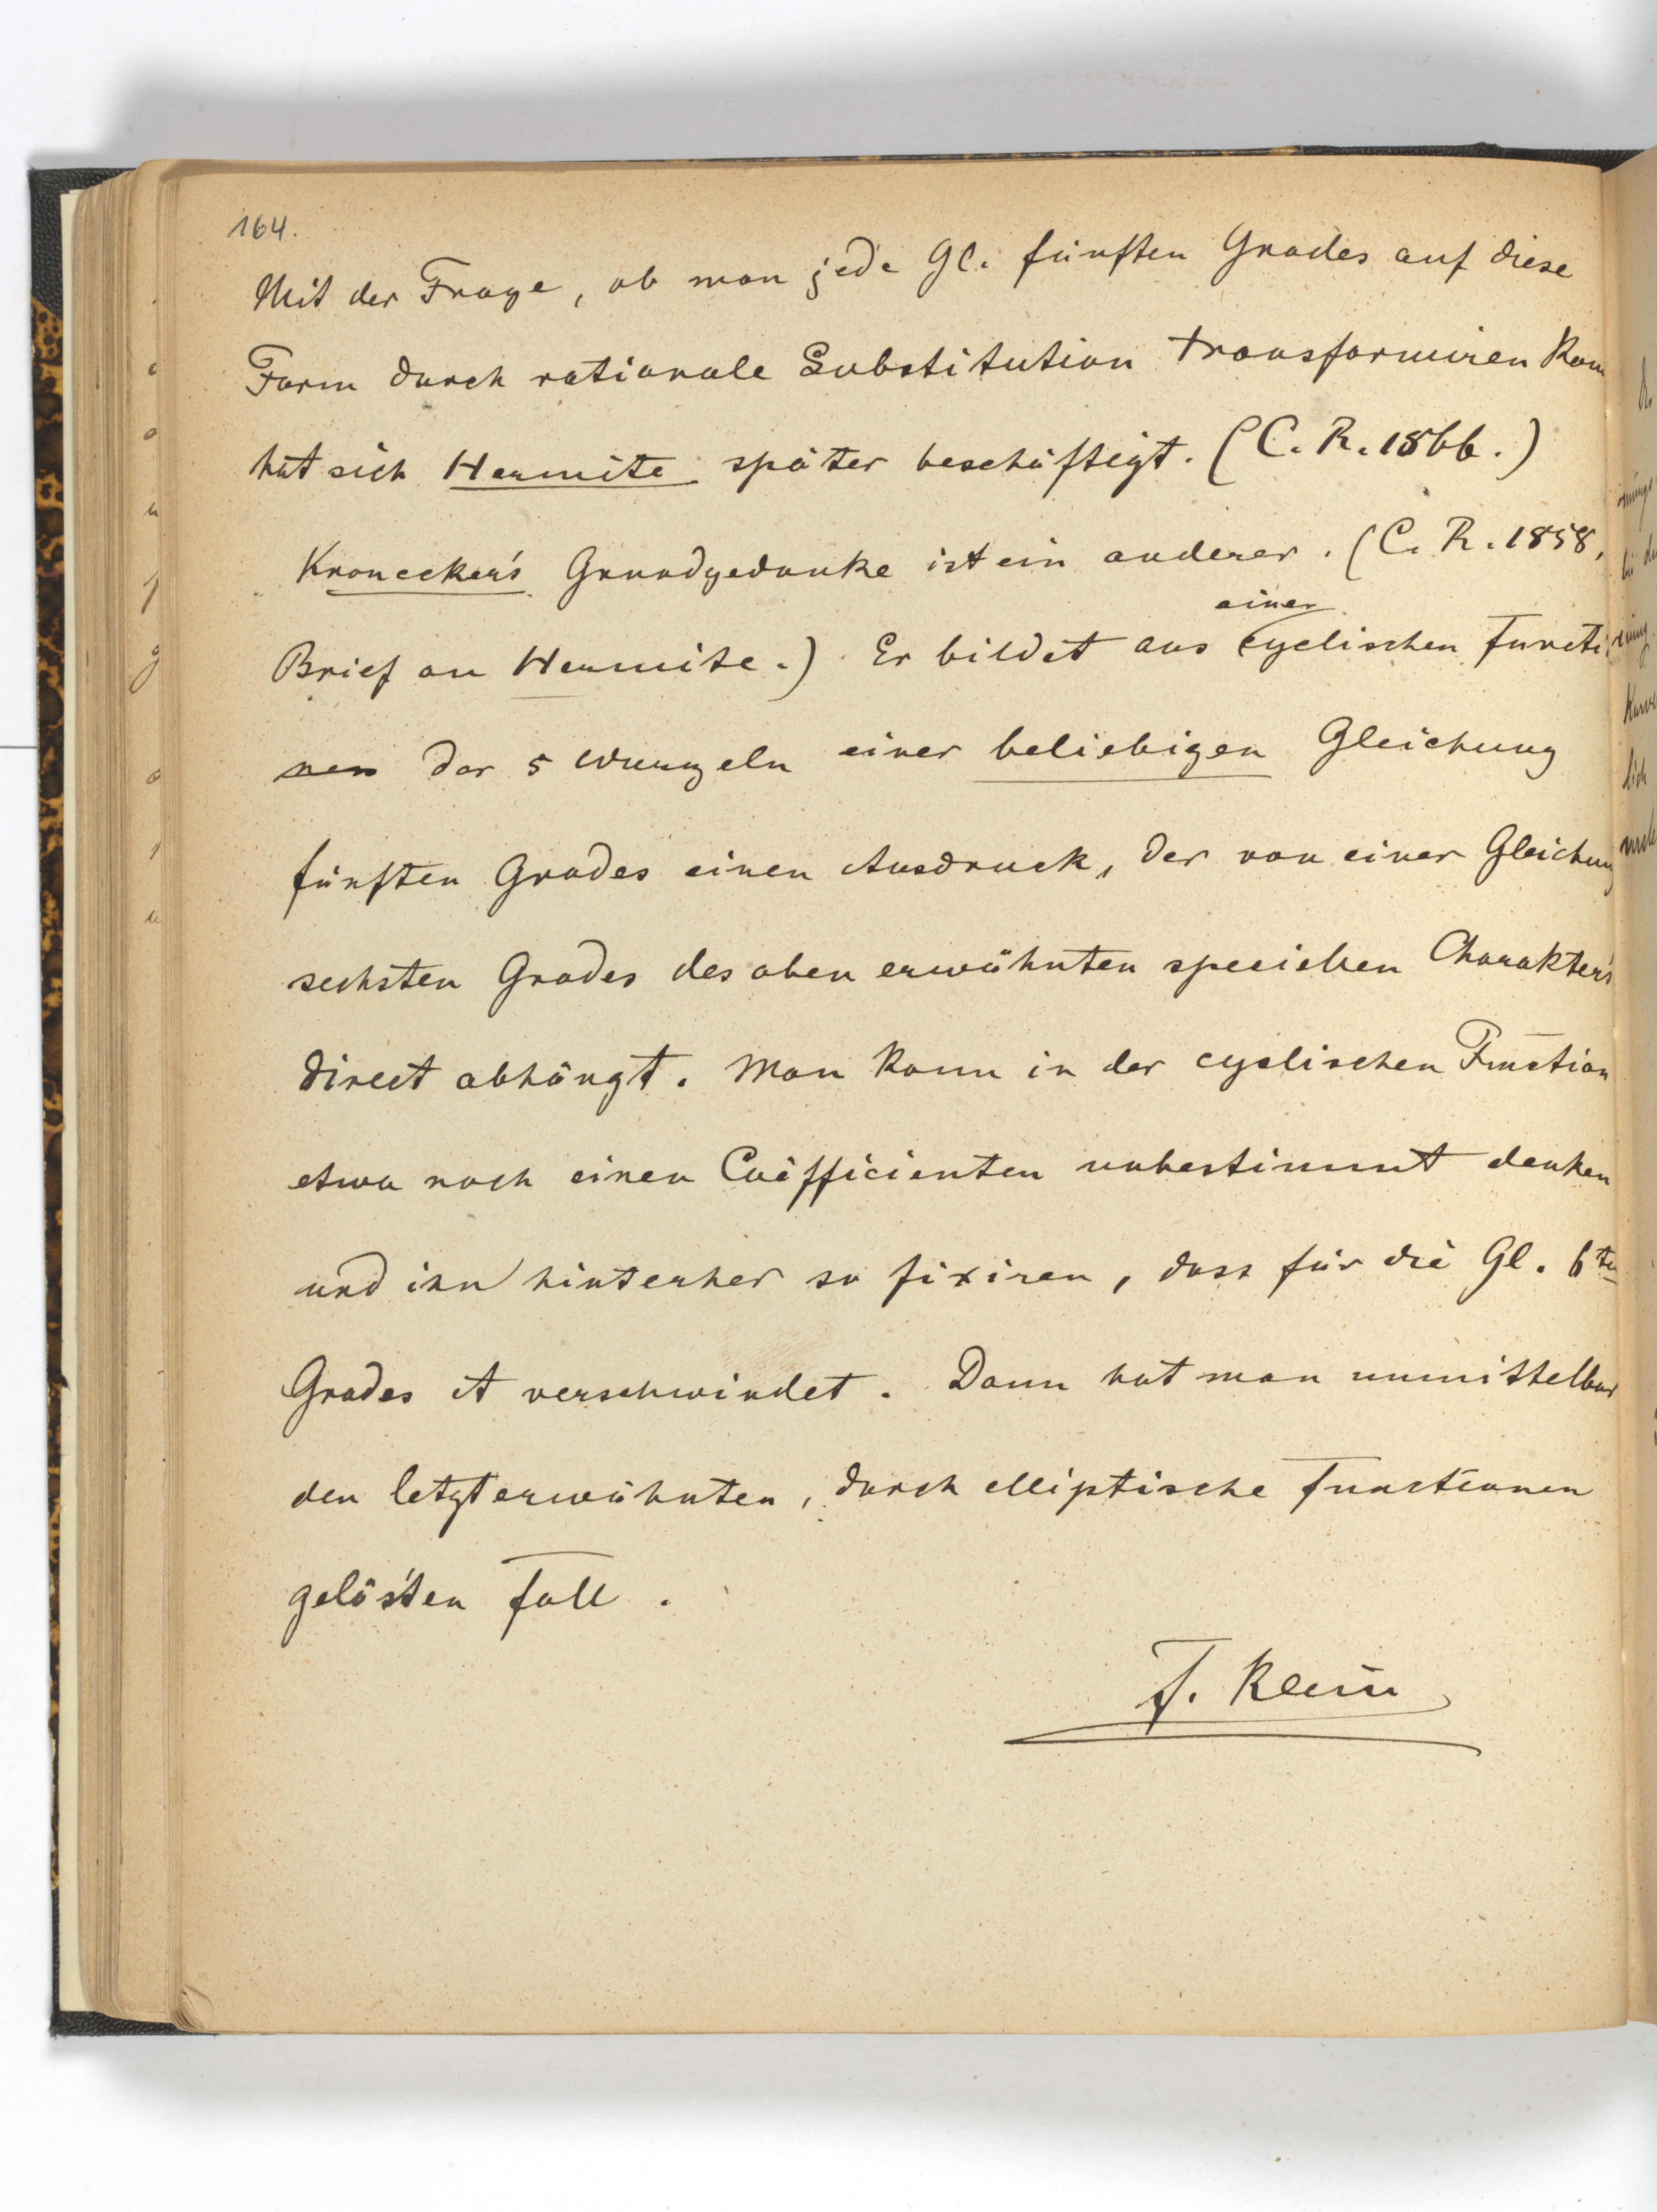 164.
Mit der Frage, ob man jede Gl. fünften Grades auf diese
Form durch rationale Substitution transformiren kann
hat sich Hermite später beschäftigt. (C. R. 1866.)
Kronecker's Grundgedanke ist ein anderer. (C. R. 1858,
einer
Brief an Hermite.) Er bildet aus cyclischen Functi
nen der 5 Wurzeln einer beliebigen Gleichung
fünften Grades einen Ausdruck, der von einer Gleichung
sechsten Grades des oben erwähnten speciellen Charakters
direct abhängt. Man kann in der cyclischen Function
etwa noch einen Coëfficienten unbestimmt denken
und ihn hinterher so fixiren, dass für die Gl. 6ten
Grades A verschwindet. Dann hat man unmittelbar
den letzterwähnten, durch elliptische Functionen
gelös'ten Fall.
F. Klein